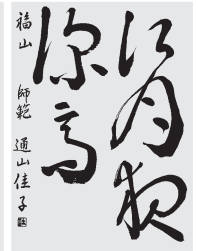 江月夜
深高
福山 師範 通山佳子